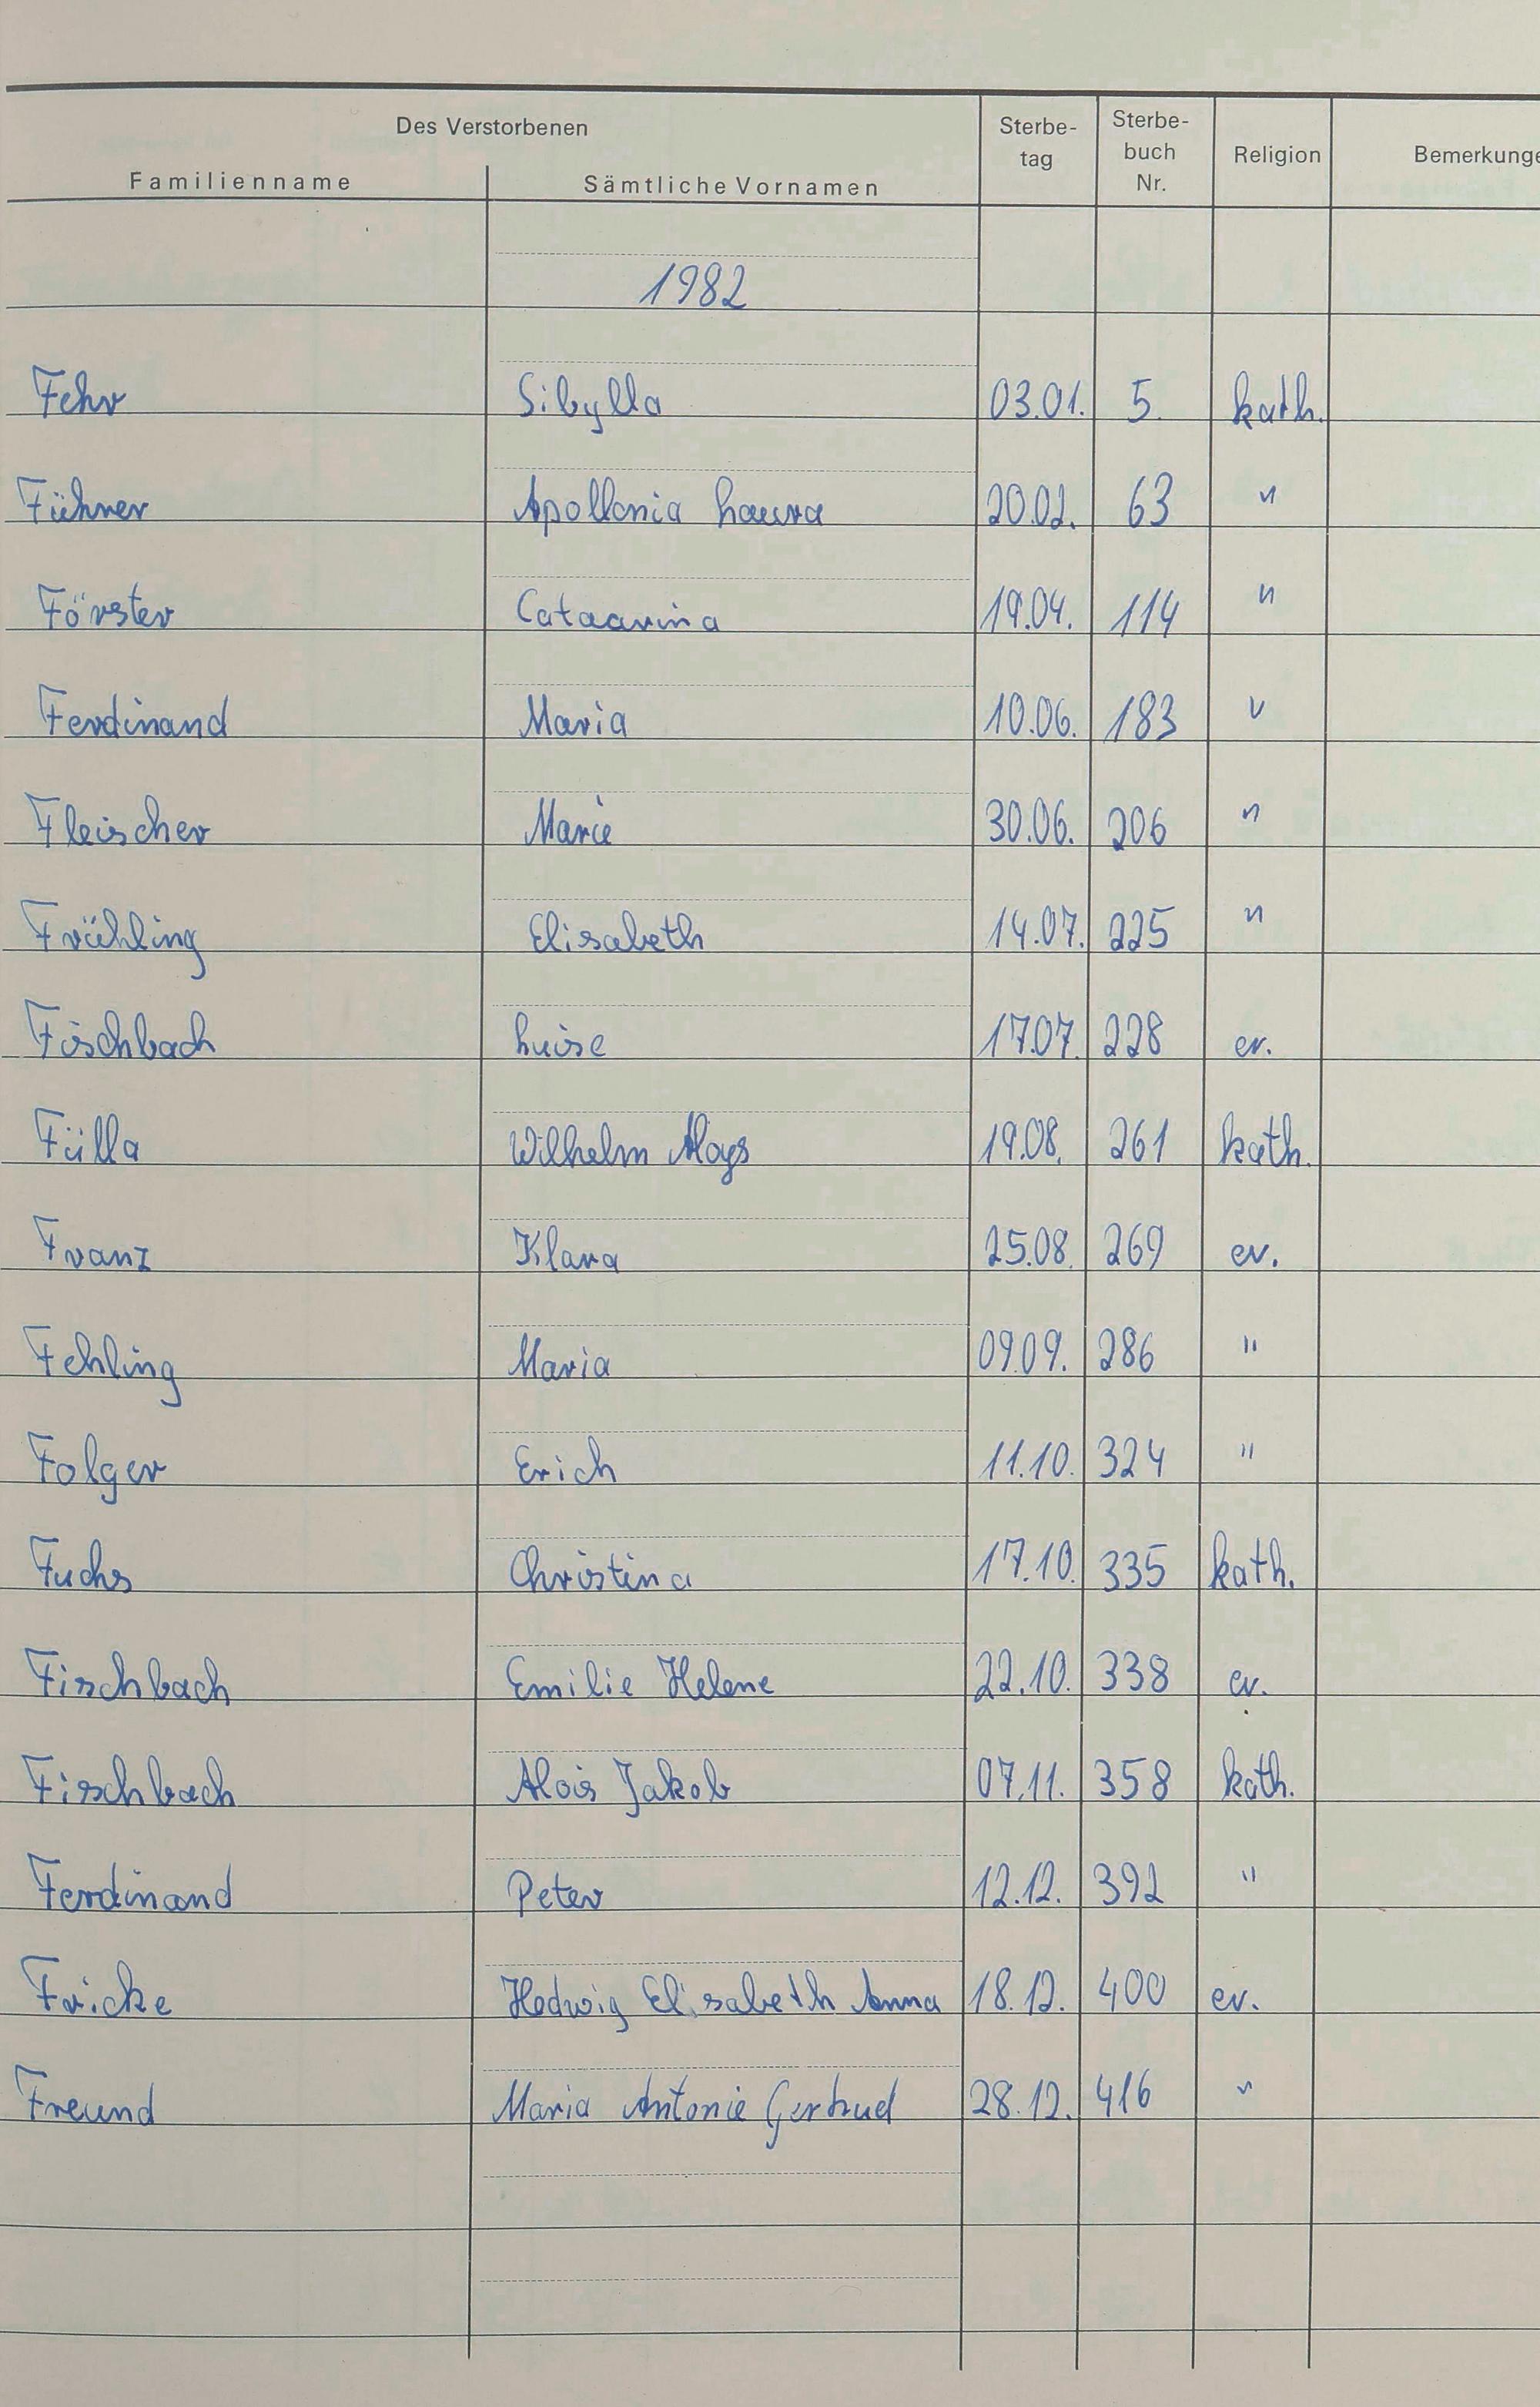 Des Verstorbenen
Familienname Sämtliche Vornamen Sterbe-tag Sterbe-buch Nr. Religion Bemerkunge
1982
Fehr Sibylla 03.01. 5. kath.
Führer Apollonia Laura 20.02. 63 "
Förster Cataarina 19.04. 114 "
Ferdinand Maria 10.06. 183 "
Fleischer Marie 30.06. 206 "
Frühling Elisabeth 14.07. 225 "
Fischbach Luise 17.07. 228 ev.
Fülla Wilhelm Aloys 19.08. 261 kath.
Franz Klara 25.08. 269 ev.
Fehling Maria 09.09. 286 "
Folger Erich 11.10. 324 "
Fuchs Christina 17.10. 335 kath.
Fischbach Emilie Helene 22.10. 338 ev.
Fischbach Alois Jakob 07.11. 358 kath.
Ferdinand Peter 12.12. 392 "
Fricke Hedwig Elisabeth Anna 18.12. 400 ev.
Freund Maria Antonie Gertrud 28.12. 416 "